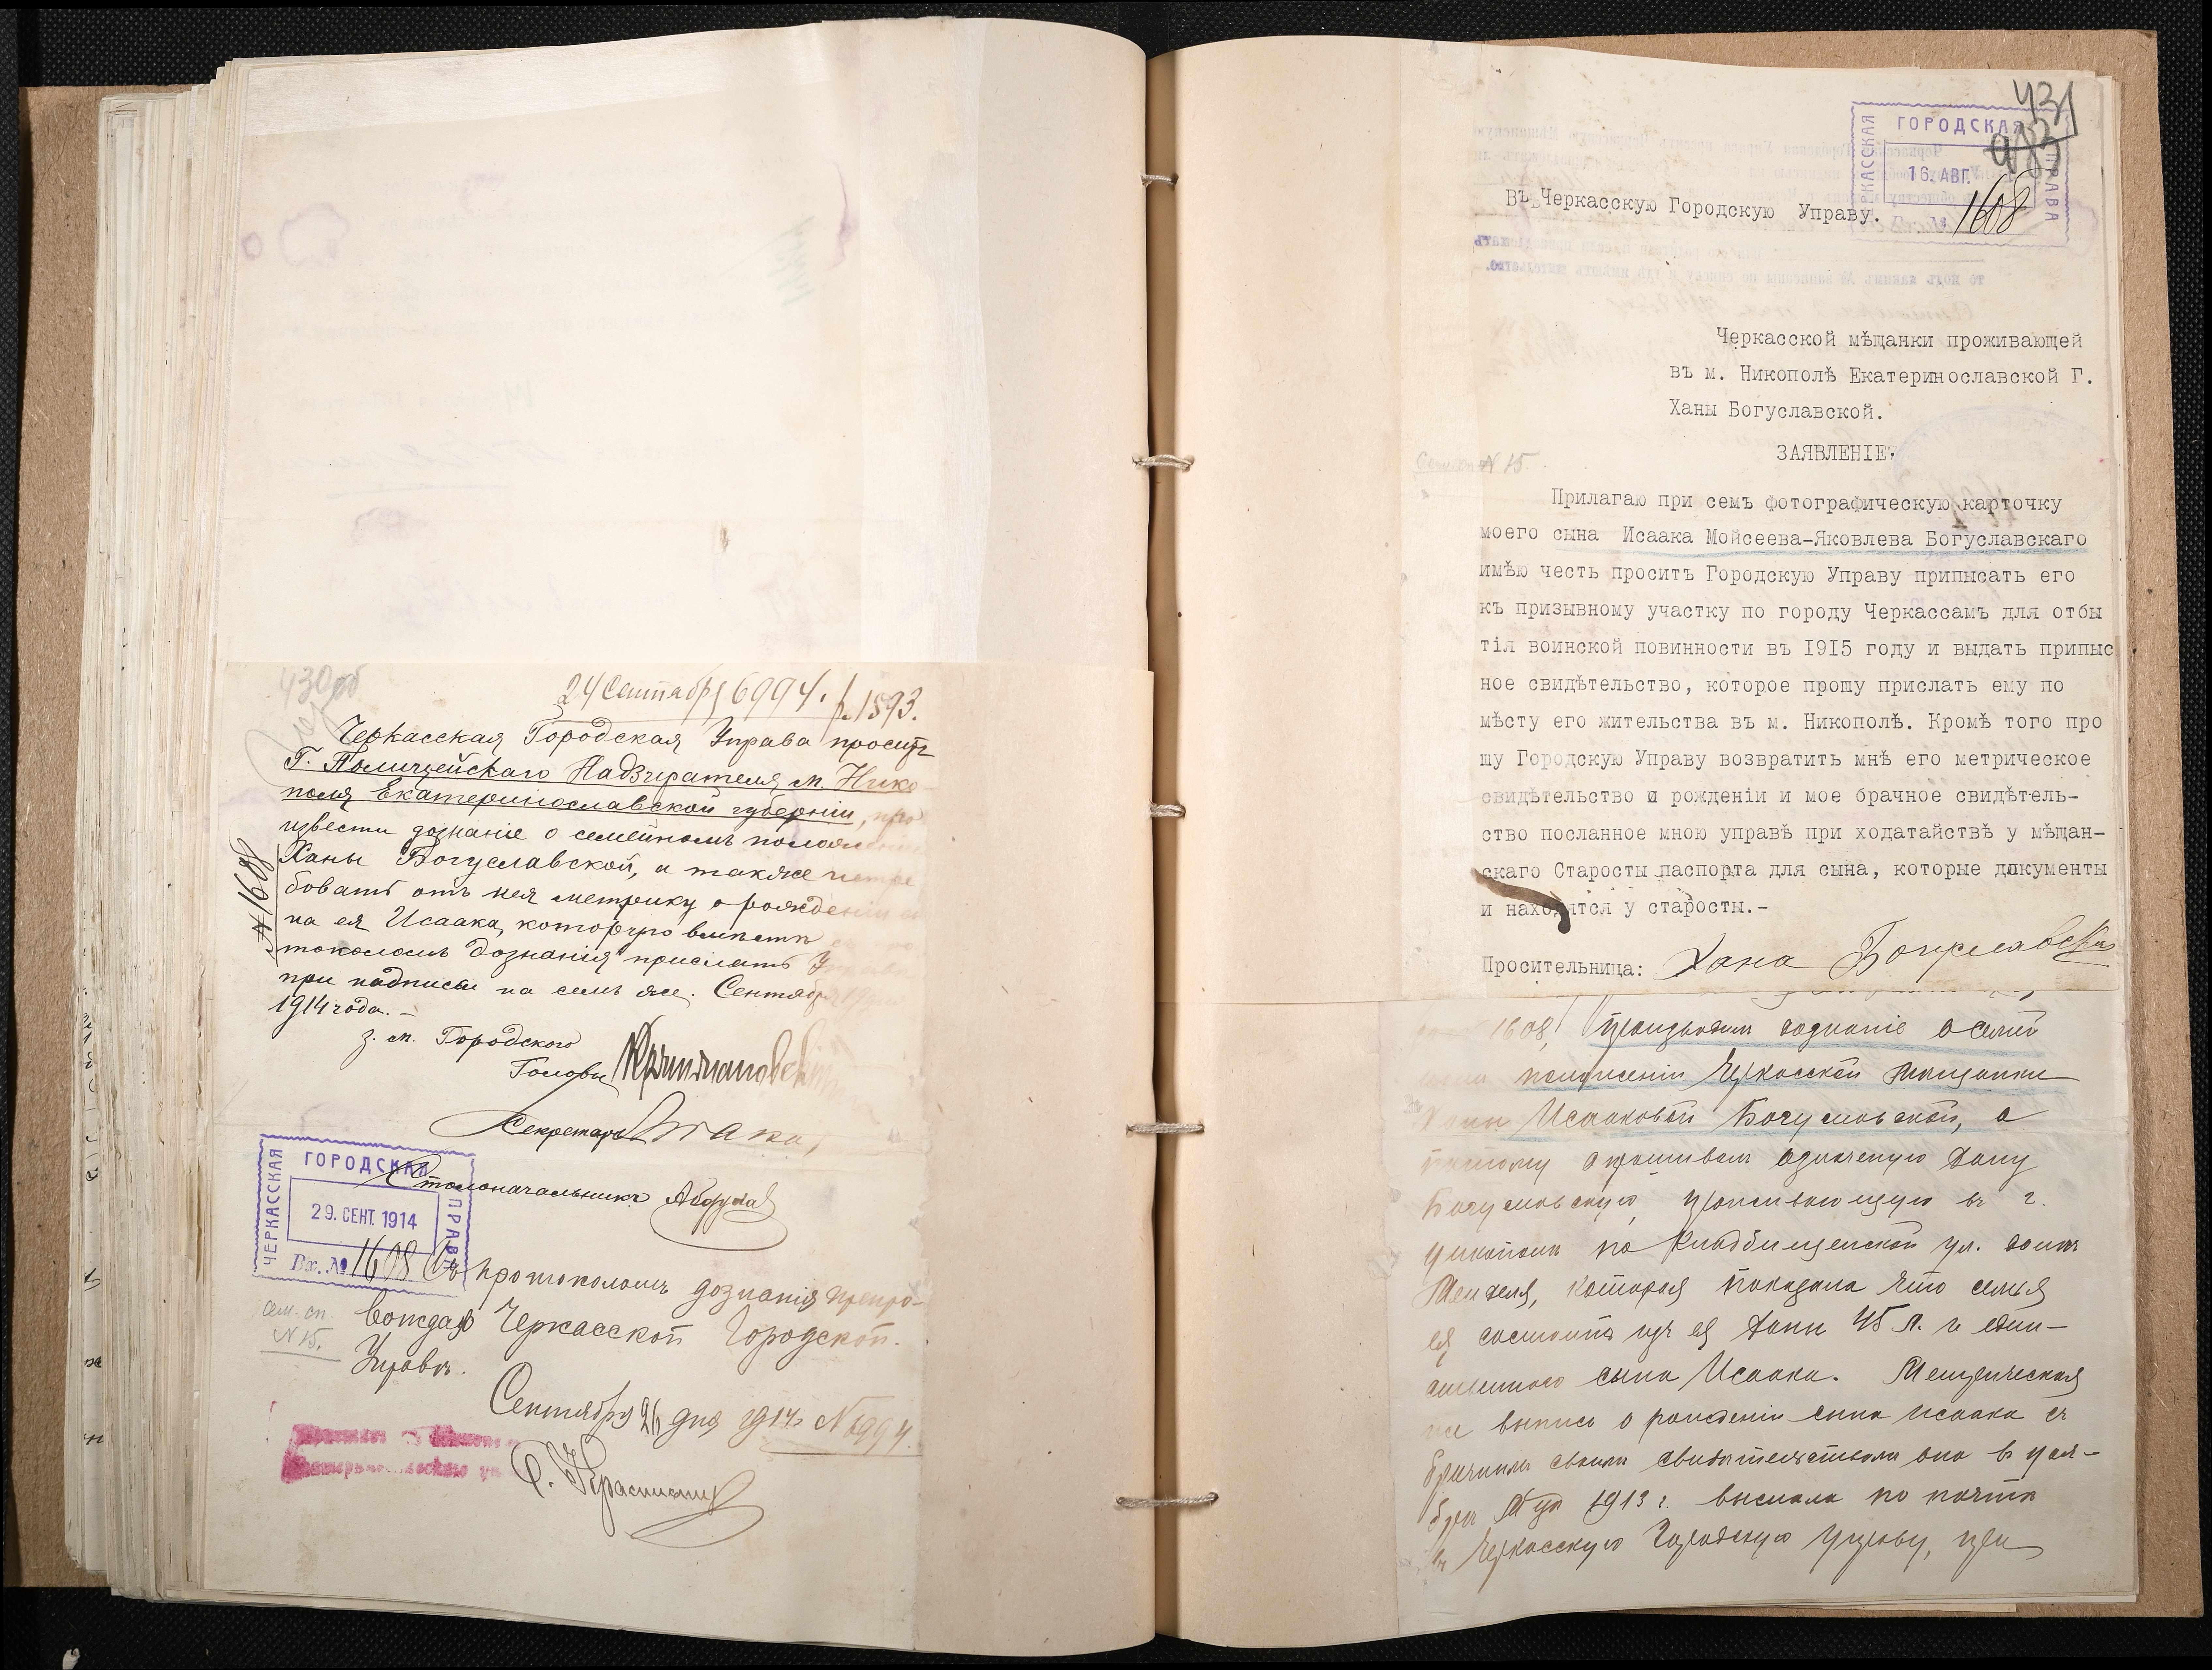 430об
24 Сентября 6994. 1893.
Черкасская Городская Управа проситъ
Г. Полицейскаго Надзирателя м. Нико-
поля Екатеринославской губерніи, про
извести дознаніе о семейномъ положеніи
Ханы Богуславской, а также истре
бовать отъ нея метрику о рожденіи сы
на ея Исаака, которую вмѣстѣ
токоломъ дознанія прислать
при надписи на семъ же. Сентября
1914 года. –
№ 1608
з. м. Городского
Головы
Секретарь
Столоначальникъ
ЧЕРКАССКАЯ ГОРОДСКАЯ УПРАВА
29. СЕНТ. 1914
Вх. № 1608
Съ протоколомъ дознанія препро-
вождаю Черкасской Городской
Управѣ.
сем. сп.
N 15.
Сентября 26 дня 1914 N 6994.
431
ЧЕРКАССКАЯ ГОРОДСКАЯ УПРАВА
16. АВГ.
1608
Въ Черкасскую Городскую Управу.
Черкасской мѣщанки проживающей
въ м. Никополѣ Екатеринославской Г.
Ханы Богуславской.
ЗАЯВЛЕНІЕ
N 15
Прилагаю при семъ фотографическую карточку
моего сына Исаака Мойсеева-Яковлева Богуславскаго
имѣю честь проситъ Городскую Управу приписать его
къ призывному участку по городу Черкассамъ для отбы
тія воинской повинности въ 1915 году и выдать припис
ное свидѣтельство, которое прошу прислать ему по
мѣсту его жительства въ м. Никополѣ. Кромѣ того про
шу Городскую Управу возвратить мнѣ его метрическое
свидѣтельство о рожденіи и мое брачное свидѣтель-
ство посланное мною управѣ при ходатайствѣ у мѣщан-
скаго Старосты паспорта для сына, которые документы
и находятся у старосты.-
Просительница: Хана Богуславская
1608, производилъ дознаніе о семей
положеніи Черкасской мѣщанки
Ханы Исааковой Богуславской, а
потому опрашивалъ означеную Хану
Богуславскую, проживающую въ г.
Никополѣ по Кладбищенской ул. домъ
которая показала что семья
ея состоитъ изъ ея Ханы 45 л. и един-
ственнаго сына Исаака. Метрическая
же выпись о рожденіи сына Исаака съ
брачнымъ своимъ свидѣтельствомъ она въ ноя-
брѣ 1913 г. выслала по почтѣ
въ Черкасскую Городскую Управу, при